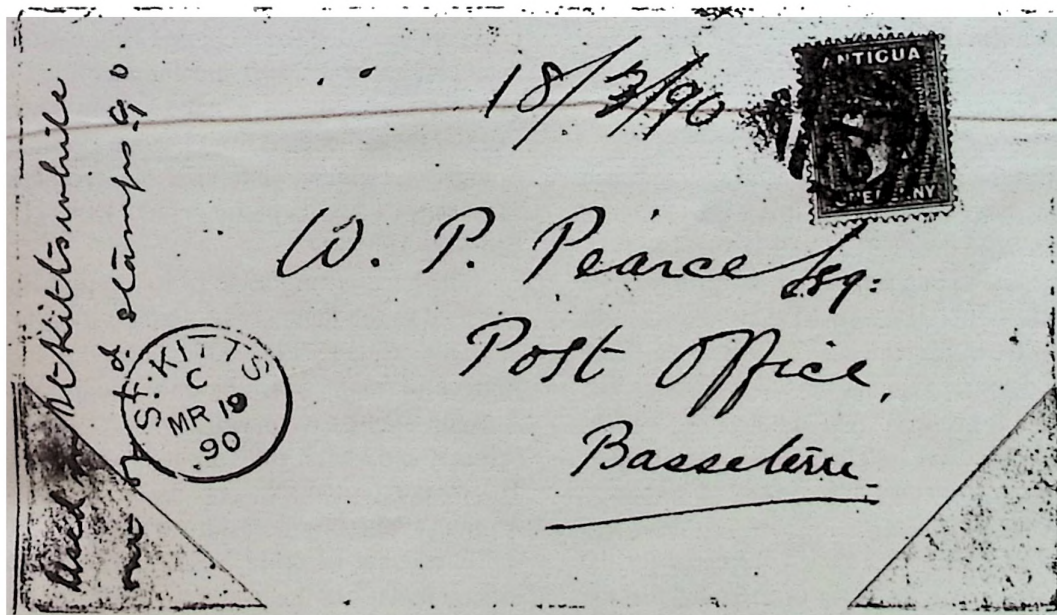 18/3/90
ANTIGUA
ONE PENNY
W. P. Pearce Esq:
Post Office,
Basseterre
ST. KITTS
C
MR 19
90
Used in St Kitts while
out of 1d stamps 90.